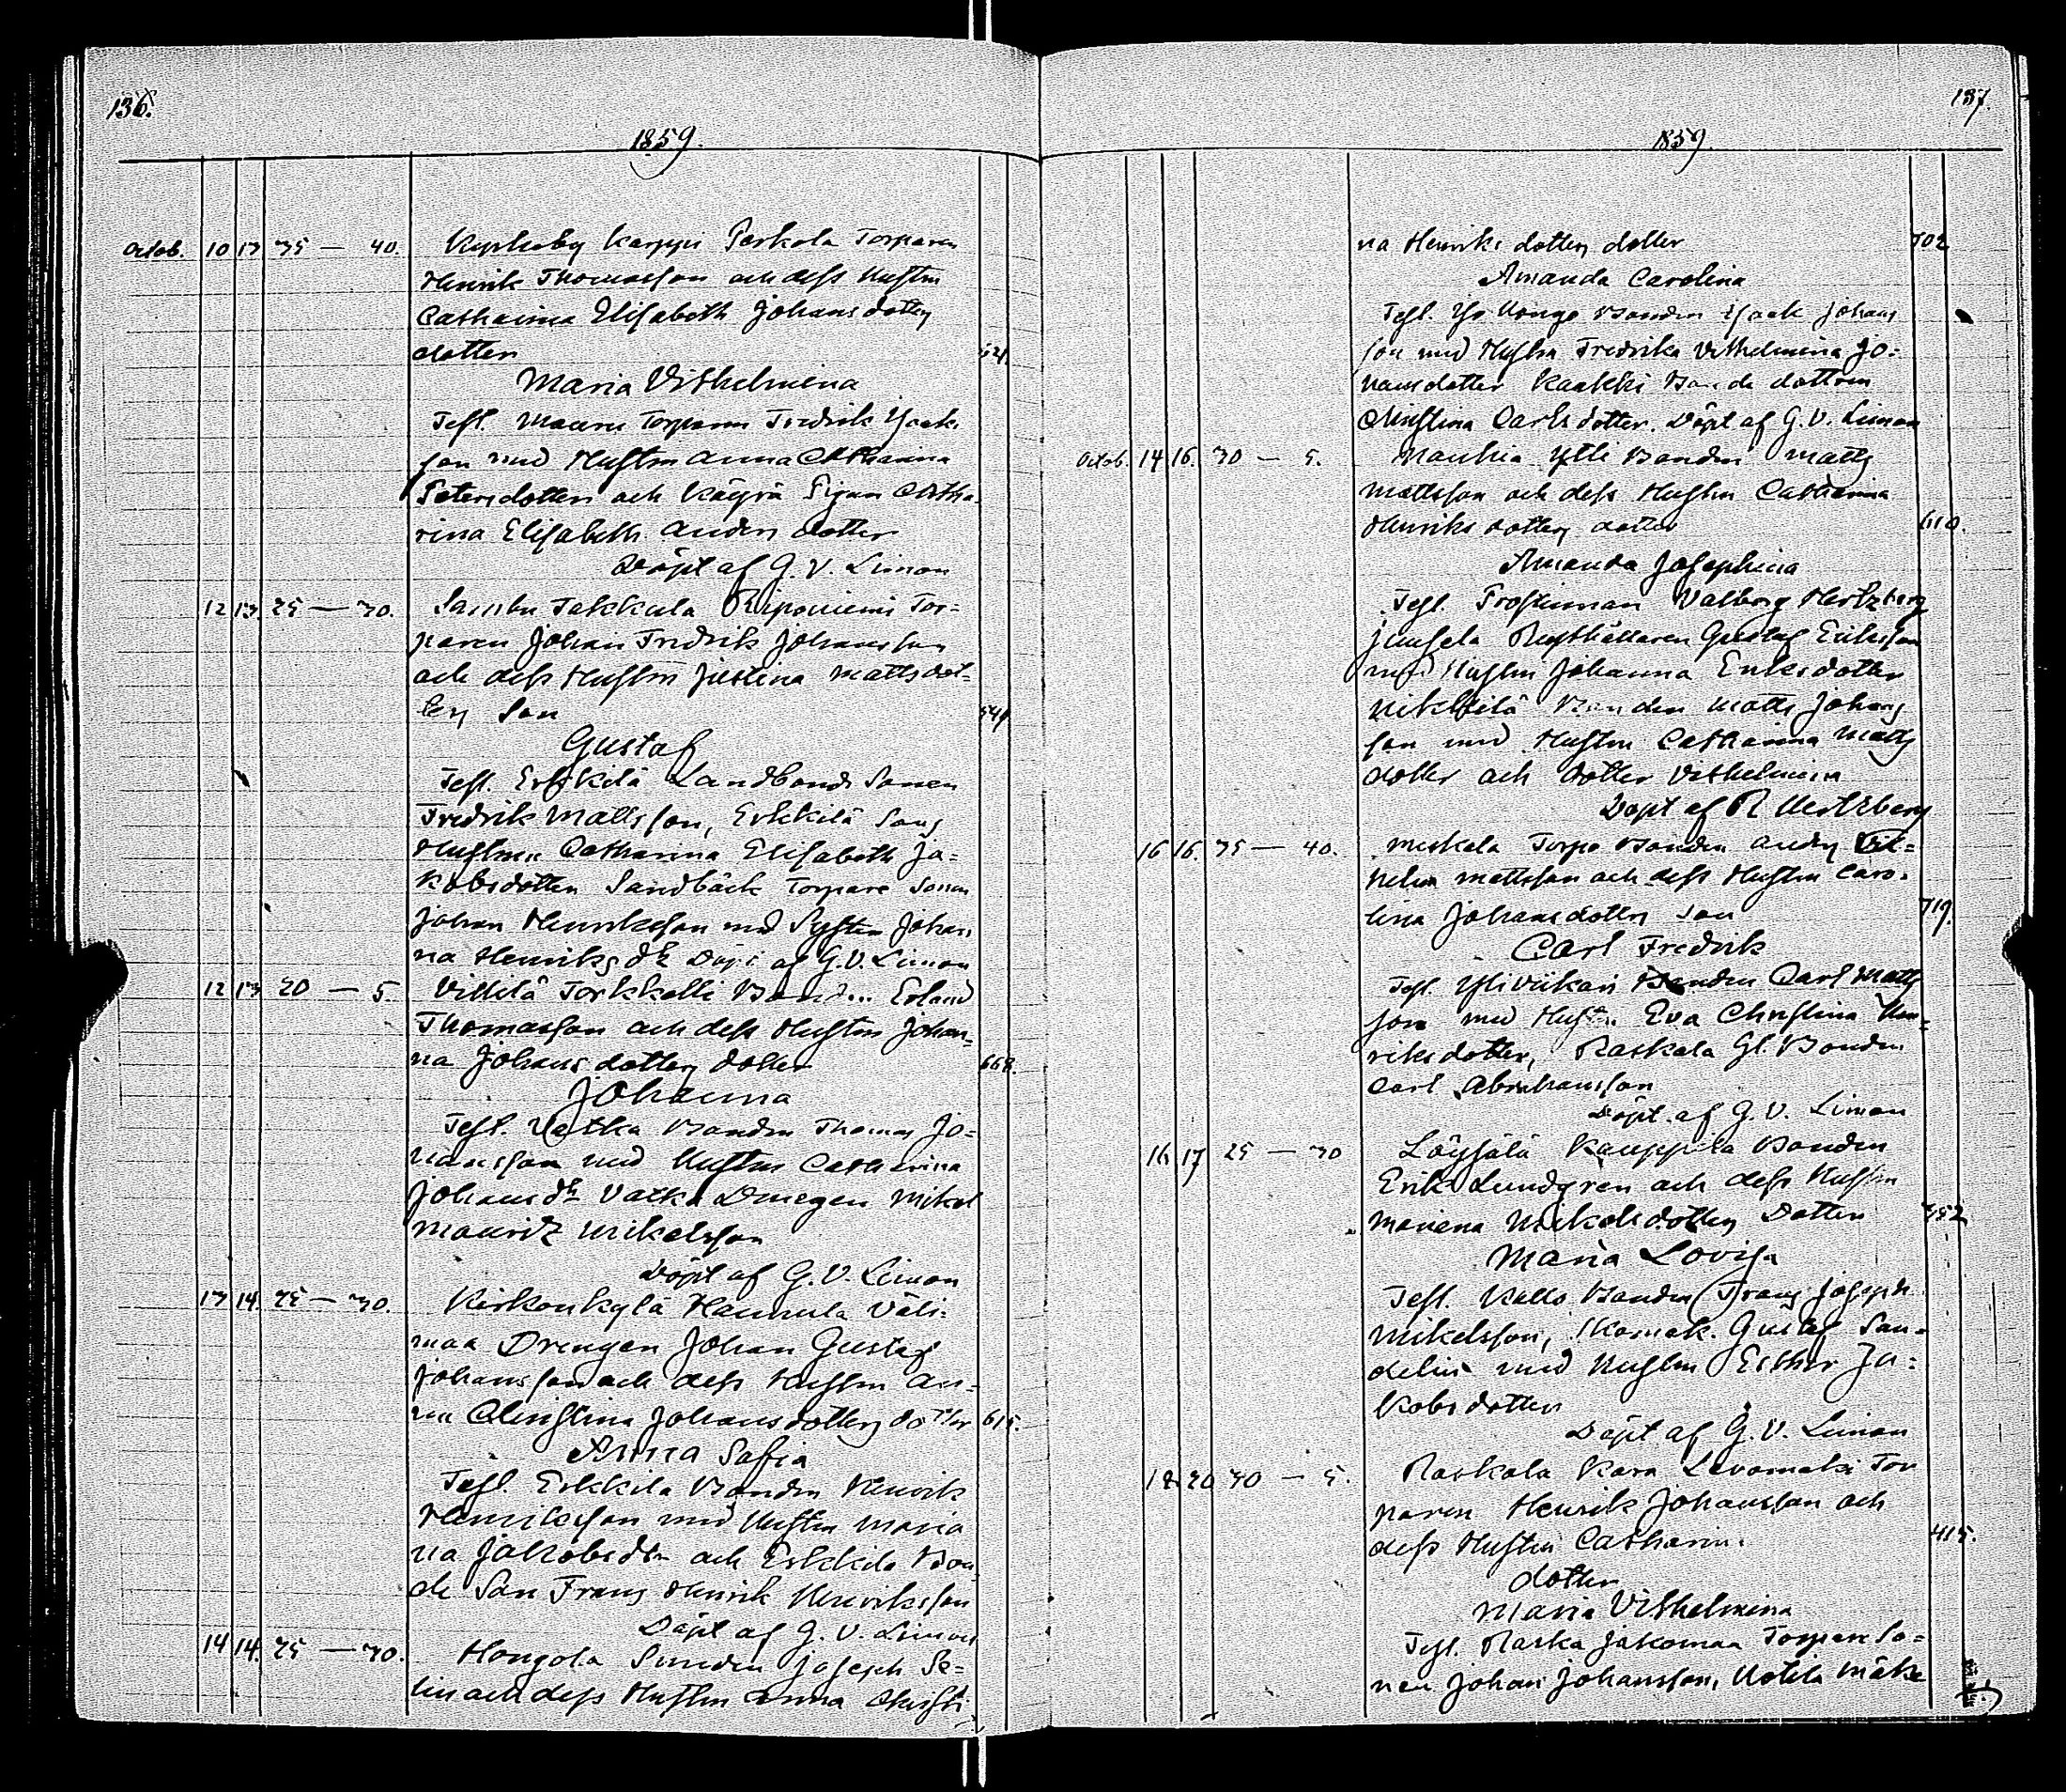 136.
1859.
Octob. 10 13 35 — 40. Kyrkoby Karppi Perkola Torparen
Henrik Thomasson och dess Hustru
Catharina Elisabeth Johansdotters
dotter
Maria Vilhelmina
Test. Mauru Torparen Fredrik Isaks
son med Hustru Anna Catharina
Petersdotter och Käyrä Pigan Catha
rina Elisabeth Anders dotter
Döpt af G. V. Limon
12 13. 25 — 30. Sambu Takkula Riponiemi Tor=
paren Johan Fredrik Johansson
och dess Hustru Justina Mattsdot=
ters Son
Gustaf
Test. Erkkilä Landbonde Sonen
Fredrik Mattsson, Erkkilä Sons
Hustrun Catharina Elisabeth Ja=
kobsdotter Sandbäck Torpare Sonen
Johan Henriksson med Syster Johan
na Henriks dr Döpt af G. V. Limon
12 13 20 — 5. Villilä Torkkelli Bonden Erland
Thomasson och dess Hustru Johan=
na Johans dotters dotter 668.
Johanna
Test. Vatka Bonden Thomas Jo=
hansson med Hustru Catharina
Johans dr Vatka Drengen Mikel
Mauritz Mikelsson
Döpt af G. V. Limon
13 14. 25 — 30. Kirkonkylä Hannula Väli=
maa Drengen Johan Gustaf
Johansson och dess Hustru An=
na Christina Johansdotters dotter 615.
Anna Sofia
Test. Erkkila Bonden Henrik
Henriksson med Hustru Maria
na Jakobsdtr och Erkkila Bon
de Son Frans Henrik Henriksson
Döpt af G. V. Limon
14 14. 25 — 30. Hongola Smeden Joseph Se=
lin och dess Hustru Anna Christi
137.
1859.
na Henriks dotters dotter 702
Amanda Carolina
Test. Iso Kongo Bonden Isaak Johans
son med Hustru Fredrika Vilhelmina Jo=
hansdotter Kaukki Bonde dottern
Christina Carlsdotter. Döpt af G. V. Limon
Octob. 14 16. 30 — 5. Mauhia Ylli Bonden Matts
Mattsson och dess Hustru Catharina
Henriks dotters dotter 610.
Amanda Josephina
Test. Prostinnan Valborg Hertzberg
Junsela Rusthållaren Gustaf Eriksson
med Hustru Johanna Eriksdotter
Nikkilä Bonden Matts Johans
son med Hustru Catharina Matts
dotter och dotter Vilhelmina
Döpt af R Hertzberg
16 16. 35 — 40. Meskala Torpo Bonden Anders Vil=
helm Mattsson och dess Hustru Caro=
lina Johansdotters Son 719.
Carl Fredrik
Test. Yli Viikari Bonden Carl Matts
son med Hustru Eva Christina Hen=
riksdotter, Raskala Gl. Bonden
Carl Abrahamsson
Döpt af G. V. Limon
16 17 25 — 30 Löysälä Kauppila Bonden
Erik Lundgren och dess Hustru
Mariana Mikelsdotters Dotter 352
Maria Lovisa
Test. Kallo Bonden Frans Joseph
Mikelsson, Skomak. Gustaf San=
delin med Hustru Esther Ja=
kobsdotter
Döpt af G. V. Limon
18 20 30 — 5. Raskala Kara Levomäki Tor
paren Henrik Johansson och
dess Hustru Catharin. 415.
dotter
Maria Vilhelmina
Test. Raska Jakomaa Torpare So=
nen Johan Johansson, Uotila Mäke